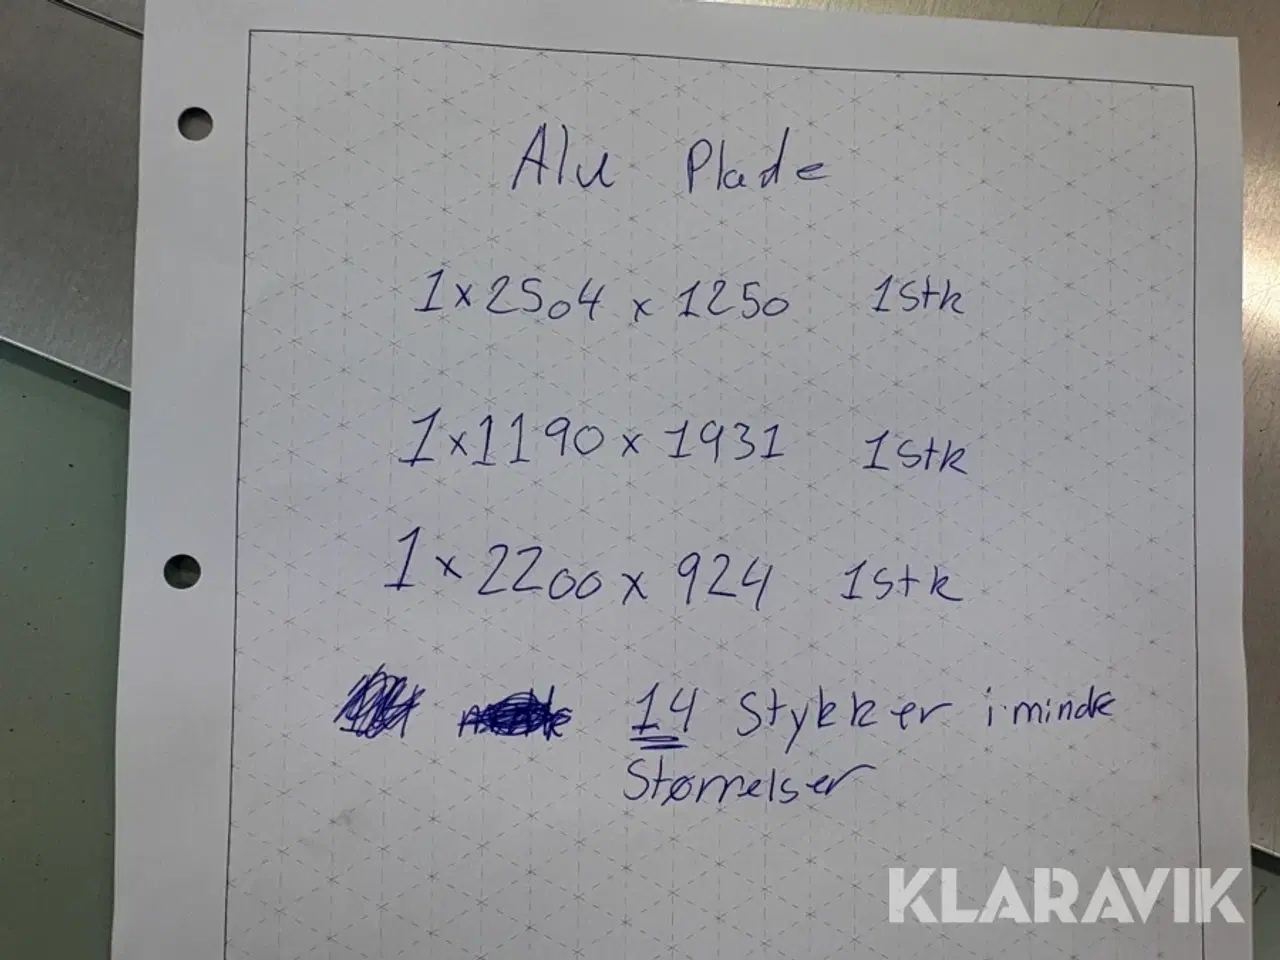 Alu Plade
1x2504 x 1250 1stk
1x1190 x 1931 1stk
1x 2200 x 924 1stk
14 Stykker i minde
Størrelser
KLARAVIK